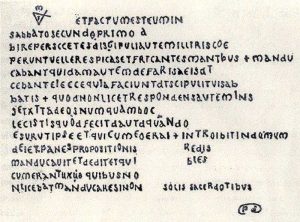 ETFACTUMESTEUMIN
SABBATOSECUNDOPRIMO À
BIREPERSCCETESDISGIPULIAUTEMILLIRISCOE
PERUNTVELLERESPICASETFRICANTESMANTBUS + MANDU
CABANTQUIDAMAUTEMDEFARISAEISDT
CEBANTEIECCEQUIAFACIUNTDISCIPULITUISAB
BATIS + QUODNONLICETRESPONDENSAUTEMINS
SETXTTADEOSNUMQUAMHOC
LECISTISQUODFECITDAUTDQUANDO
ESURUTIPSEETQUICUMEOERAT + INTROIBITINDOMUM
DEIETPANESPROPOSITIONIS REDIS
MANDUCAUITETDEDITETQUI BLES
CUMERANTUXUO QUIBUSNO
NLICEBATMANDUCARESINON SOLIS SACERDOTIBUS
PS